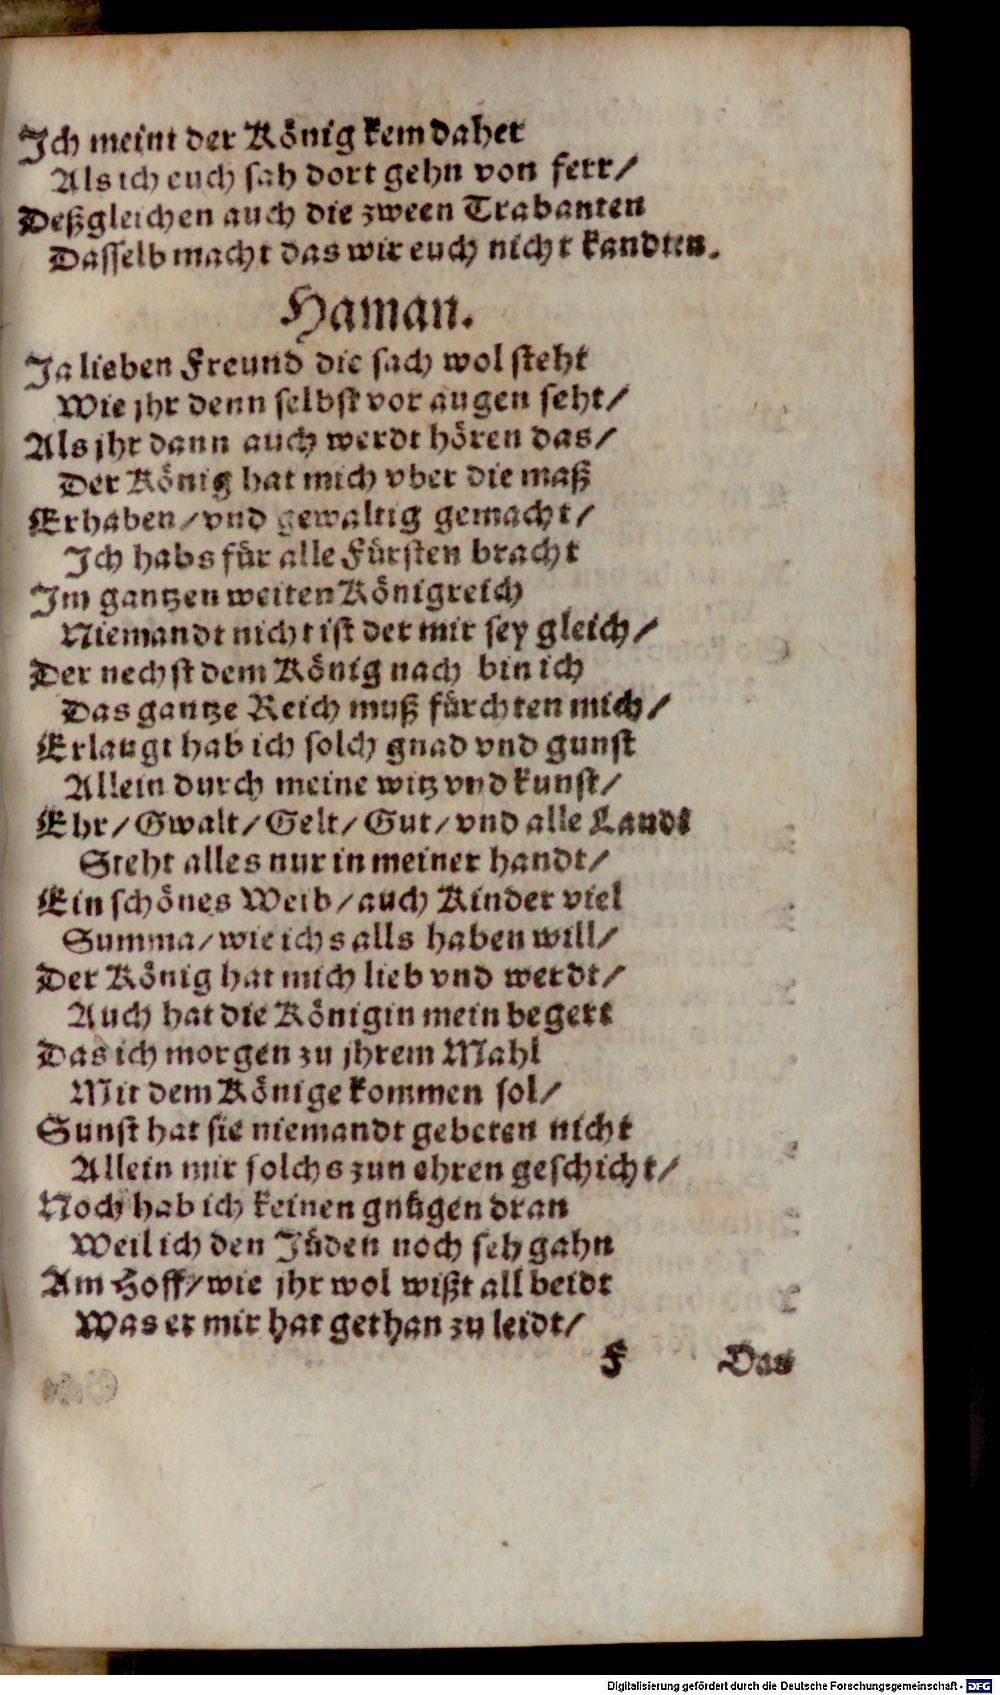 Ich meint der König kem daher
Als ich euch sah dort gehn von ferr/
Deßgleichen auch die zween Trabanten
Dasselb macht das wir euch nicht kandten.
Haman.
Ja lieben Freund die sach wol steht
Wie jhr denn selbst vor augen seht/
Als jhr dann auch werdt hören das/
Der König hat mich vber die maß
Erhaben/vnd gewaltig gemacht/
Ich habs für alle Fürsten bracht
Im gantzen weiten Königreich
Niemandt nicht ist der mir sey gleich/
Der nechst dem König nach bin ich
Das gantze Reich muß fürchten mich/
Erlangt hab ich solch gnad vnd gunst
Allein durch meine witz vnd kunst/
Ehr/Gwalt/Gelt/Gut/vnd alle Landt
Steht alles nur in meiner handt/
Ein schönes Weib/auch Kinder viel
Summa/wie ichs alls haben will/
Der König hat mich lieb vnd werdt/
Auch hat die Königin mein begert
Das ich morgen zu jhrem Mahl
Mit dem Könige kommen sol/
Sunst hat sie niemandt gebeten nicht
Allein mir solchs zun ehren geschicht/
Noch hab ich keinen gnügen dran
Weil ich den Jüden noch seh gahn
Am Hoff/wie jhr wol wißt all beidt
Was er mir hat gethan zu leidt/
F Das
Digitalisierung gefördert durch die Deutsche Forschungsgemeinschaft - DFG